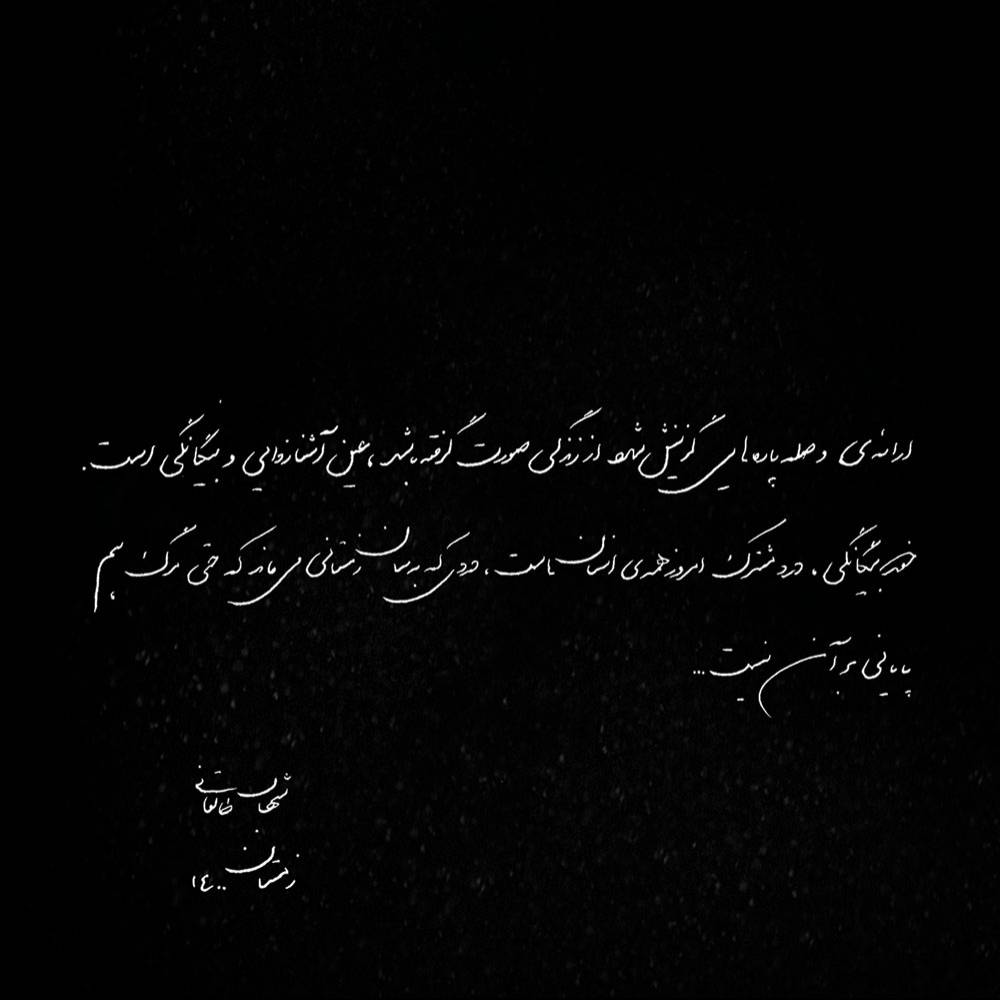 ارائه‌ی وصله پاره‌هایی گزینش شده از زندگی صورت گرفته باشد، عین آشنازدایی و بیگانگی است.
خودبیگانگی، درد مشترک امروز همه‌ی انسان‌هاست، دردی که به‌سان زمستانی می‌ماند که حتی مرگ هم
پایانی بر آن نیست...
شهاب طالقانی
زمستان ۱۴۰۰